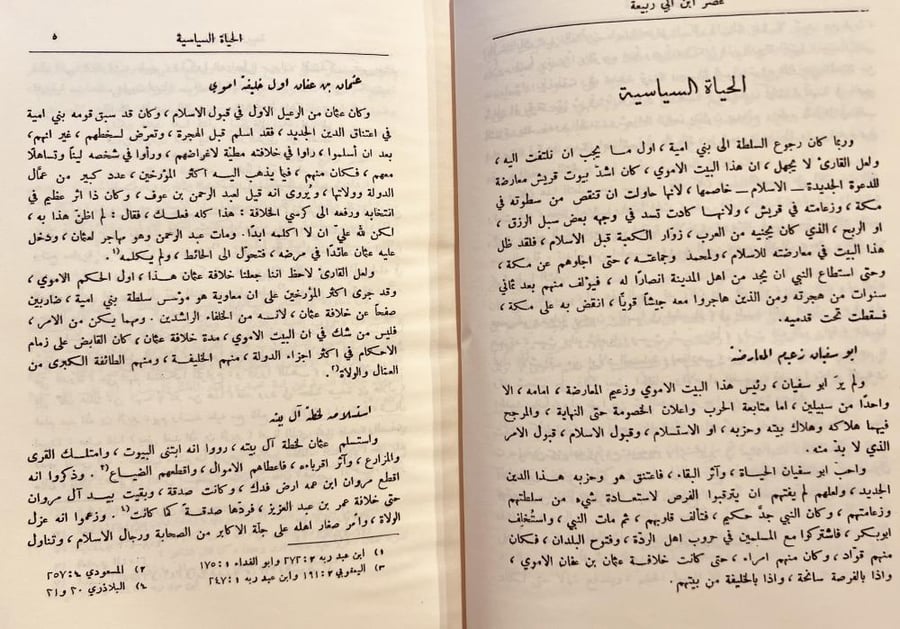 عصر ابن ابي ربيعة
الحياة السياسية
وربما كان رجوع السلطة الى بني امية ، اول مـا يجب ان نلتفت اليه ،
ولعل القارئ لا يجهل ، ان هذا البيت الاموي ، كان اشد بيوت قريش معارضة
للدعوة الجديدة ــ الاسلام ــ خاصمها ، لانها حاولت ان تنتقص من سطوته في
مكة ، وزعامته في قريش ، ولانهـا كادت تسد في وجهه بعض سبل الرزق ،
او الربح ، الذي كان يجنيه من العرب ، زوّار الكعبة قبل الاسلام ، فلقد ظل
هذا البيت في معارضته للاسلام ، ولمحمد وجماعتـه ، حتى اجلوهم عن مكة ،
وحتى استطاع النبي ان يجد من اهل المدينة انصارًا له ، فيؤلف منهم بعد ثماني
سنوات من هجرته ومن الذين هاجروا معه جيشًا قويًا ، انقض به على مكة ،
فسقطت تحت قدميه .
ابو سفيان زعيم المعارضة
ولم يرَ ابو سفيان ، رئيس هذا البيت الاموي وزعيم المعارضة ، امامه ، الا
واحدًا من سبيلين ، اما متابعة الحرب واعلان الخصومة حتى النهاية ، والمرجح
فيهما هلاكه وهلاك بيته وحزبه ، او الاستسلام ، وقبول الاسلام ، قبول الامر
الذي لا بدّ منه .
واحب ابو سفيان الحيـاة ، وآثر البقاء ، فاعتنق هو وحزبه هـذا الدين
الجديد ، ولعلهم لم يفتهم ان يترقبوا الفرص لاستعـادة شيء من سلطتهم
وزعامتهم ، وكان النبي جدّ حكيم ، فتألف قلوبهم ، ثم مات النبي ، واستُخلف
ابوبكر ، فاشتركوا مع المسلمين في حروب اهل الردّة ، وفتوح البلدان ، فكان
منهم قوّاد ، وكان منهم امراء ، حتى كانت خلافـة عثمان بن عفان الاموي ،
واذا بالفرصة سانحة ، واذا بالخليفة من بيتهم .
الحياة السياسية ٥
عثمان بن عفان اول خليفة اموي
وكان عثمان من الرعيل الاول في قبول الاسلام ، وكان قد سبق قومه بني امية
في اعتناق الدين الجديد ، فقد اسلم قبل الهجرة ، وتعرّض لسخطهم ، غير انهم ،
بعد ان أسلموا ، رأوا في خلافته مطيّة لاغراضهم ، ورأوا في شخصه لينًا وتساهلًا
معهم ، فكان منهم ، فيما يذهب اليـه اكثر المؤرخين ، عدد كبير من عمّال
الدولة وولاتها ، ويُروى انه قيل لعبد الرحمن بن عوف ، وكان ذا اثر عظيم في
انتخابه ورفعه الى كرسي الخلافة : هذا كله فعلك ، فقال : لم اظنّ هذا به ،
لكن لله عليّ ان لا اكلمه ابدًا . ومات عبد الرحمن وهو مهاجر لعثمان ، ودخل
عليه عثمان عائدًا في مرضه ، فتحوّل الى الحائط ، ولم يكلمه (١ .
ولعل القارئ لاحظ اننا جعلنا خلافة عثمان هـذا ، اول الحكم الاموي ،
وقد جرى اكثر المؤرخين على ان معاوية هو مؤسس سلطة بني امية ، ضاربين
صفحًا عن خلافة عثمان ، لانـه من الخلفاء الراشدين . ومهما يكن من الامر ،
فليس من شك في ان البيت الاموي ، مدة خلافة عثمان ، كان القابض على زمام
الاحكام في اكثر اجزاء الدولة ، منهم الخليفـة ، ومنهم الطائفة الكبرى من
العمّال والولاة (٢ .
استسلامه لخطة آل بيته
واستسلم عثمان لخطة آل بيته ، رووا انه ابتنى البيوت ، وامتلـك القرى
والمزارع ، وآثر اقرباءه ، فاعطاهم الاموال ، واقطعهم الضيـاع (٣ . وذكروا انه
اقطع مروان ابن عمه ارض فدك ، وكانت صدقة ، وبقيت بيـد آل مروان
حتى خلافة عمر بن عبد العزيز ، فردّها صدقـة كما كانت (٤ . وزعموا انه عزل
الولاة ، وأمّر صغار اهله على جلّة الاكابر من الصحابة ورجال الاسلام ، وتناول
١) ابن عبد ربه ٢ : ٢٧٢ وابو الفداء ١ : ١٧٥ ٢) المسعودي ٤ : ٢٥٧
٣) اليعقوبي ٢ : ١٩١ وابن عبد ربه ١ : ٢٤٧ ٤) البلاذري ٢٠ و ٢١